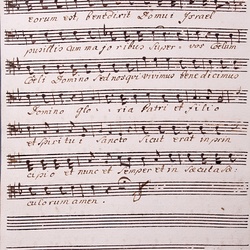 eorum est, benedixit Domui Israel
pusillis cum majoribus super vos Celum
Celi Domino sed nos qui vivimus benedicimus
Domino glo ria Patri et filio
et spiritui Sancto Sicut erat in prin
cipio et nunc et semper et in saecula sae.
culorum amen.